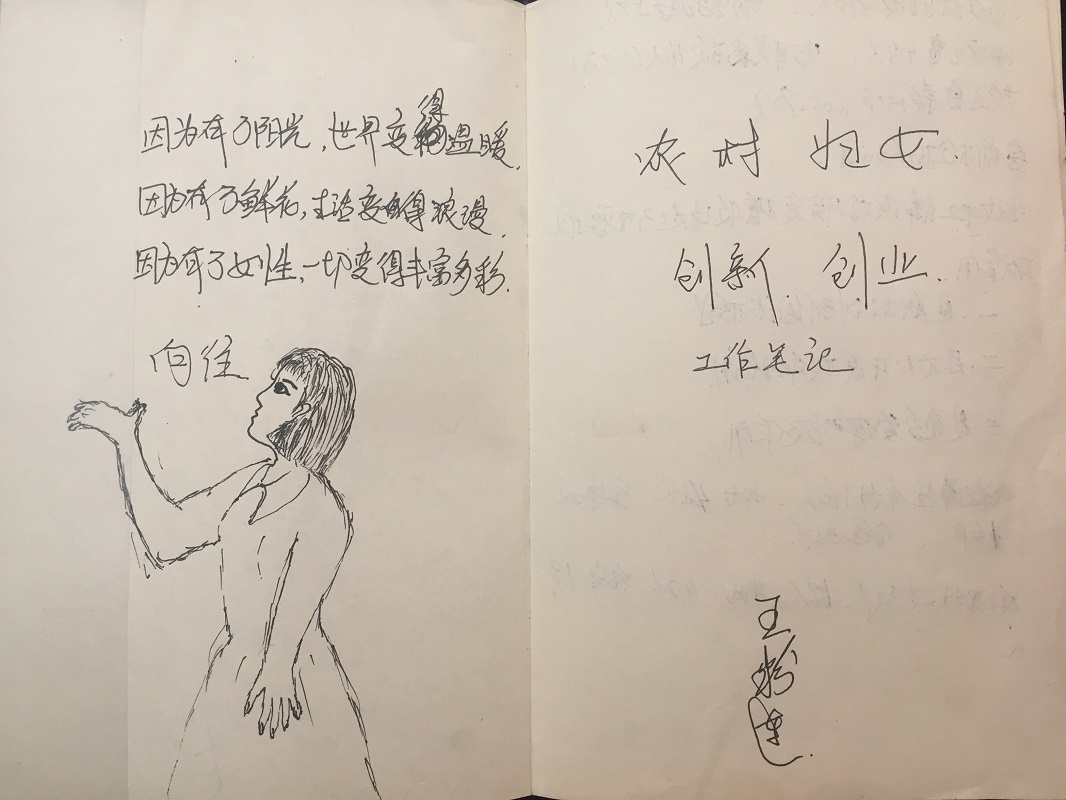 因为有了阳光,世界变得温暖.
因为有了鲜花,生活变得浪漫.
因为有了女性,一切变得丰富多彩.
向往
农村 妇女.
创新 创业.
工作笔记
王粉莲.